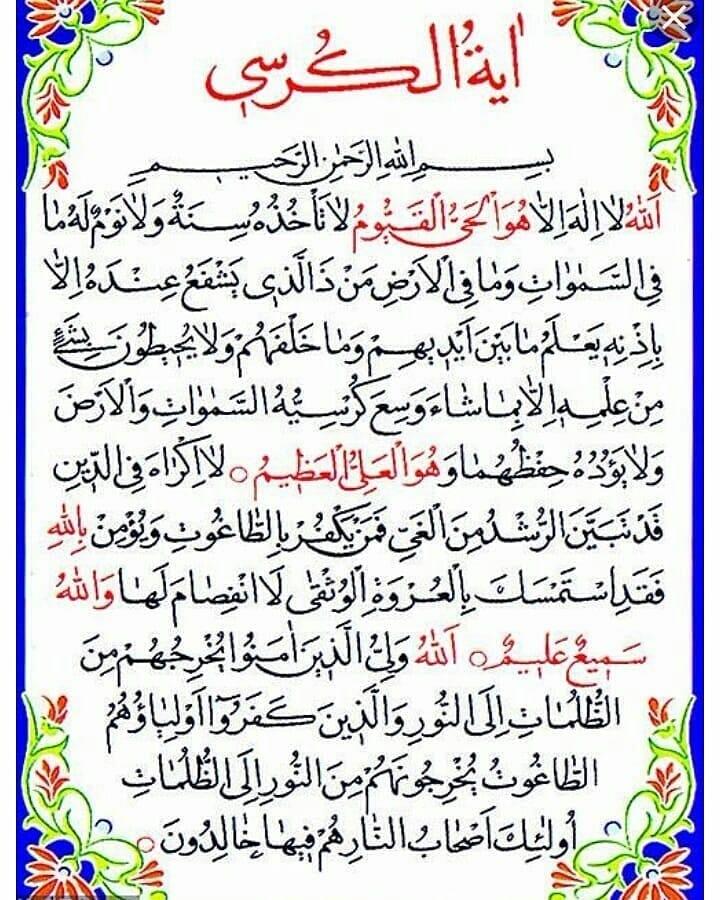 اٰيَةُ الْكُرْسِي
بِسْمِ اللهِ الرَّحْمٰنِ الرَّحِيمِ
اَللهُ لَا اِلٰهَ اِلَّا هُوَ الْحَيُّ الْقَيُّومُ لَا تَأْخُذُهُ سِنَةٌ وَلَا نَوْمٌ لَهُ مَا
فِي السَّمٰوَاتِ وَمَا فِي الْاَرْضِ مَنْ ذَا الَّذِي يَشْفَعُ عِنْدَهُ اِلَّا
بِاِذْنِهِ يَعْلَمُ مَا بَيْنَ اَيْدِيهِمْ وَمَا خَلْفَهُمْ وَلَا يُحِيطُونَ بِشَيْءٍ
مِنْ عِلْمِهِ اِلَّا بِمَا شَاءَ وَسِعَ كُرْسِيُّهُ السَّمٰوَاتِ وَالْاَرْضَ
وَلَا يَؤُدُهُ حِفْظُهُمَا وَهُوَ الْعَلِيُّ الْعَظِيمُ ○ لَا اِكْرَاهَ فِي الدِّينِ
قَدْ تَبَيَّنَ الرُّشْدُ مِنَ الْغَيِّ فَمَنْ يَكْفُرْ بِالطَّاغُوتِ وَيُؤْمِنْ بِاللهِ
فَقَدِ اسْتَمْسَكَ بِالْعُرْوَةِ الْوُثْقٰى لَا انْفِصَامَ لَهَا وَاللهُ
سَمِيعٌ عَلِيمٌ ○ اَللهُ وَلِيُّ الَّذِينَ اٰمَنُوا يُخْرِجُهُمْ مِنَ
الظُّلُمَاتِ اِلَى النُّورِ وَالَّذِينَ كَفَرُوا اَوْلِيَاؤُهُمُ
الطَّاغُوتُ يُخْرِجُونَهُمْ مِنَ النُّورِ اِلَى الظُّلُمَاتِ
اُولٰئِكَ اَصْحَابُ النَّارِ هُمْ فِيهَا خَالِدُونَ ○